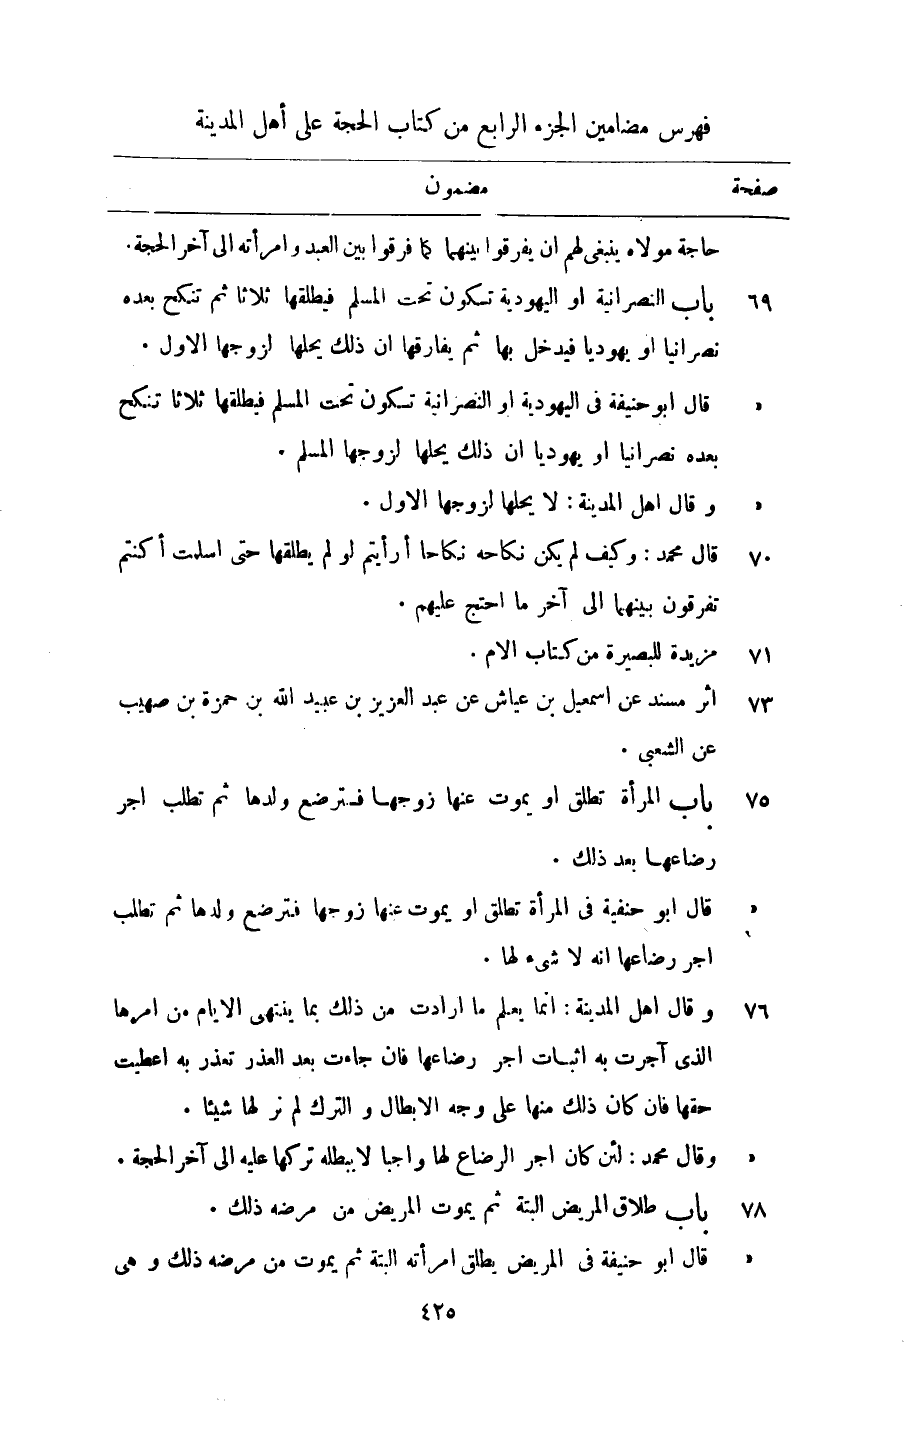 فهرس مضامين الجزء الرابع من كتاب الحجة على أهل المدينة
صفحة مضمون
حاجة مولاه ينبغى لهم ان يفرقوا بينهما كما فرقوا بين العبد وامرأته الى آخر الحجة.
٦٩ باب النصرانية او اليهودية تكون تحت المسلم فيطلقها ثلاثا ثم تنكح بعده
نصرانيا او يهوديا فيدخل بها ثم يفارقها ان ذلك يحلها لزوجها الاول .
« قال ابو حنيفة فى اليهودية او النصرانية تكون تحت المسلم فيطلقها ثلاثا تنكح
بعده نصرانيا او يهوديا ان ذلك يحلها لزوجها المسلم .
« و قال اهل المدينة : لا يحلها لزوجها الاول .
٧٠ قال محمد : وكيف لم يكن نكاحه نكاحا أرأيتم لو لم يطلقها حتى اسلمت أكنتم
تفرقون بينهما الى آخر ما احتج عليهم .
٧١ مزيدة للبصيرة من كتاب الام .
٧٣ اثر مسند عن اسمعيل بن عياش عن عبد العزيز بن عبيد الله بن حمزة بن صهيب
عن الشعبى .
٧٥ باب المرأة تطلق او يموت عنها زوجها فترضع ولدها ثم تطلب اجر
رضاعها بعد ذلك .
« قال ابو حنفية فى المرأة تطلق او يموت عنها زوجها فترضع ولدها ثم تطلب
اجر رضاعها انه لا شىء لها .
٧٦ و قال اهل المدينة : انما يعلم ما ارادت من ذلك بما ينتهى الايام من امرها
الذى آجرت به اثبات اجر رضاعها فان جاءت بعد العذر تعذر به اعطيت
حقها فان كان ذلك منها على وجه الابطال و الترك لم نر لها شيئا .
« وقال محمد : لئن كان اجر الرضاع لها واجبا لا يبطله تركها عليه الى آخر الحجة .
٧٨ باب طلاق المريض البتة ثم يموت المريض من مرضه ذلك .
« قال ابو حنيفة فى المريض يطلق امرأته البتة ثم يموت من مرضه ذلك و هى
٤٢٥